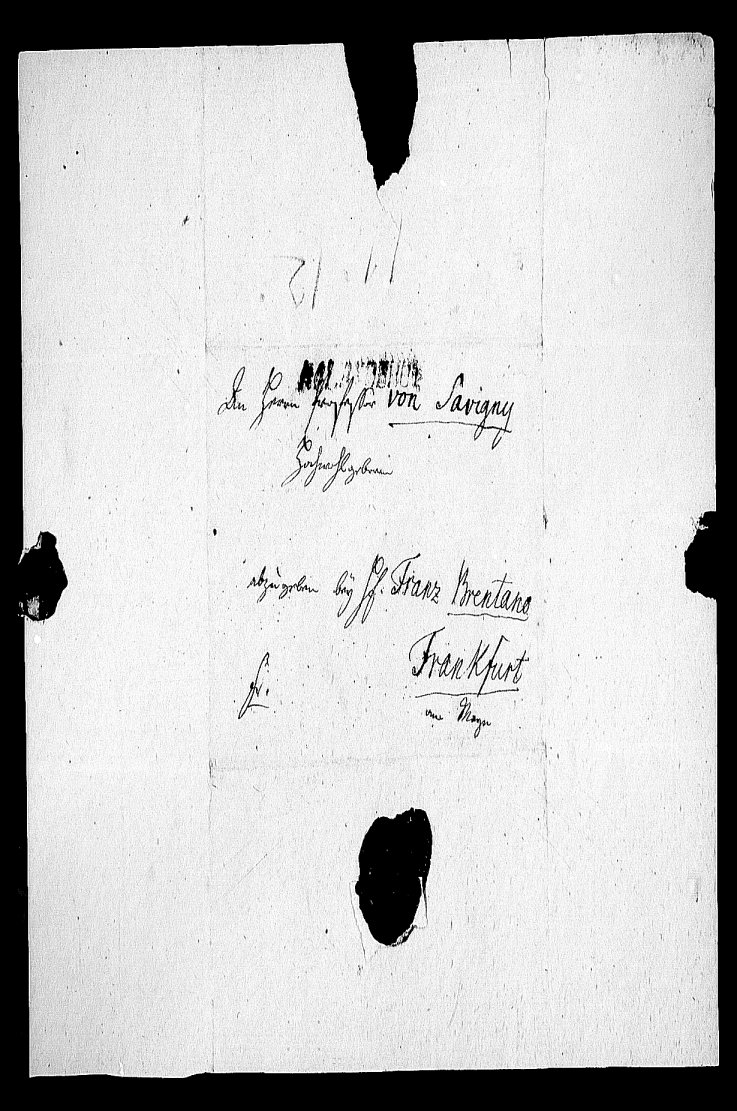 An Herrn Professor von Savigny
Hochwohlgeboren
abzugeben bey H. Franz Brentano
Frankfurt
am Mayn
fr.